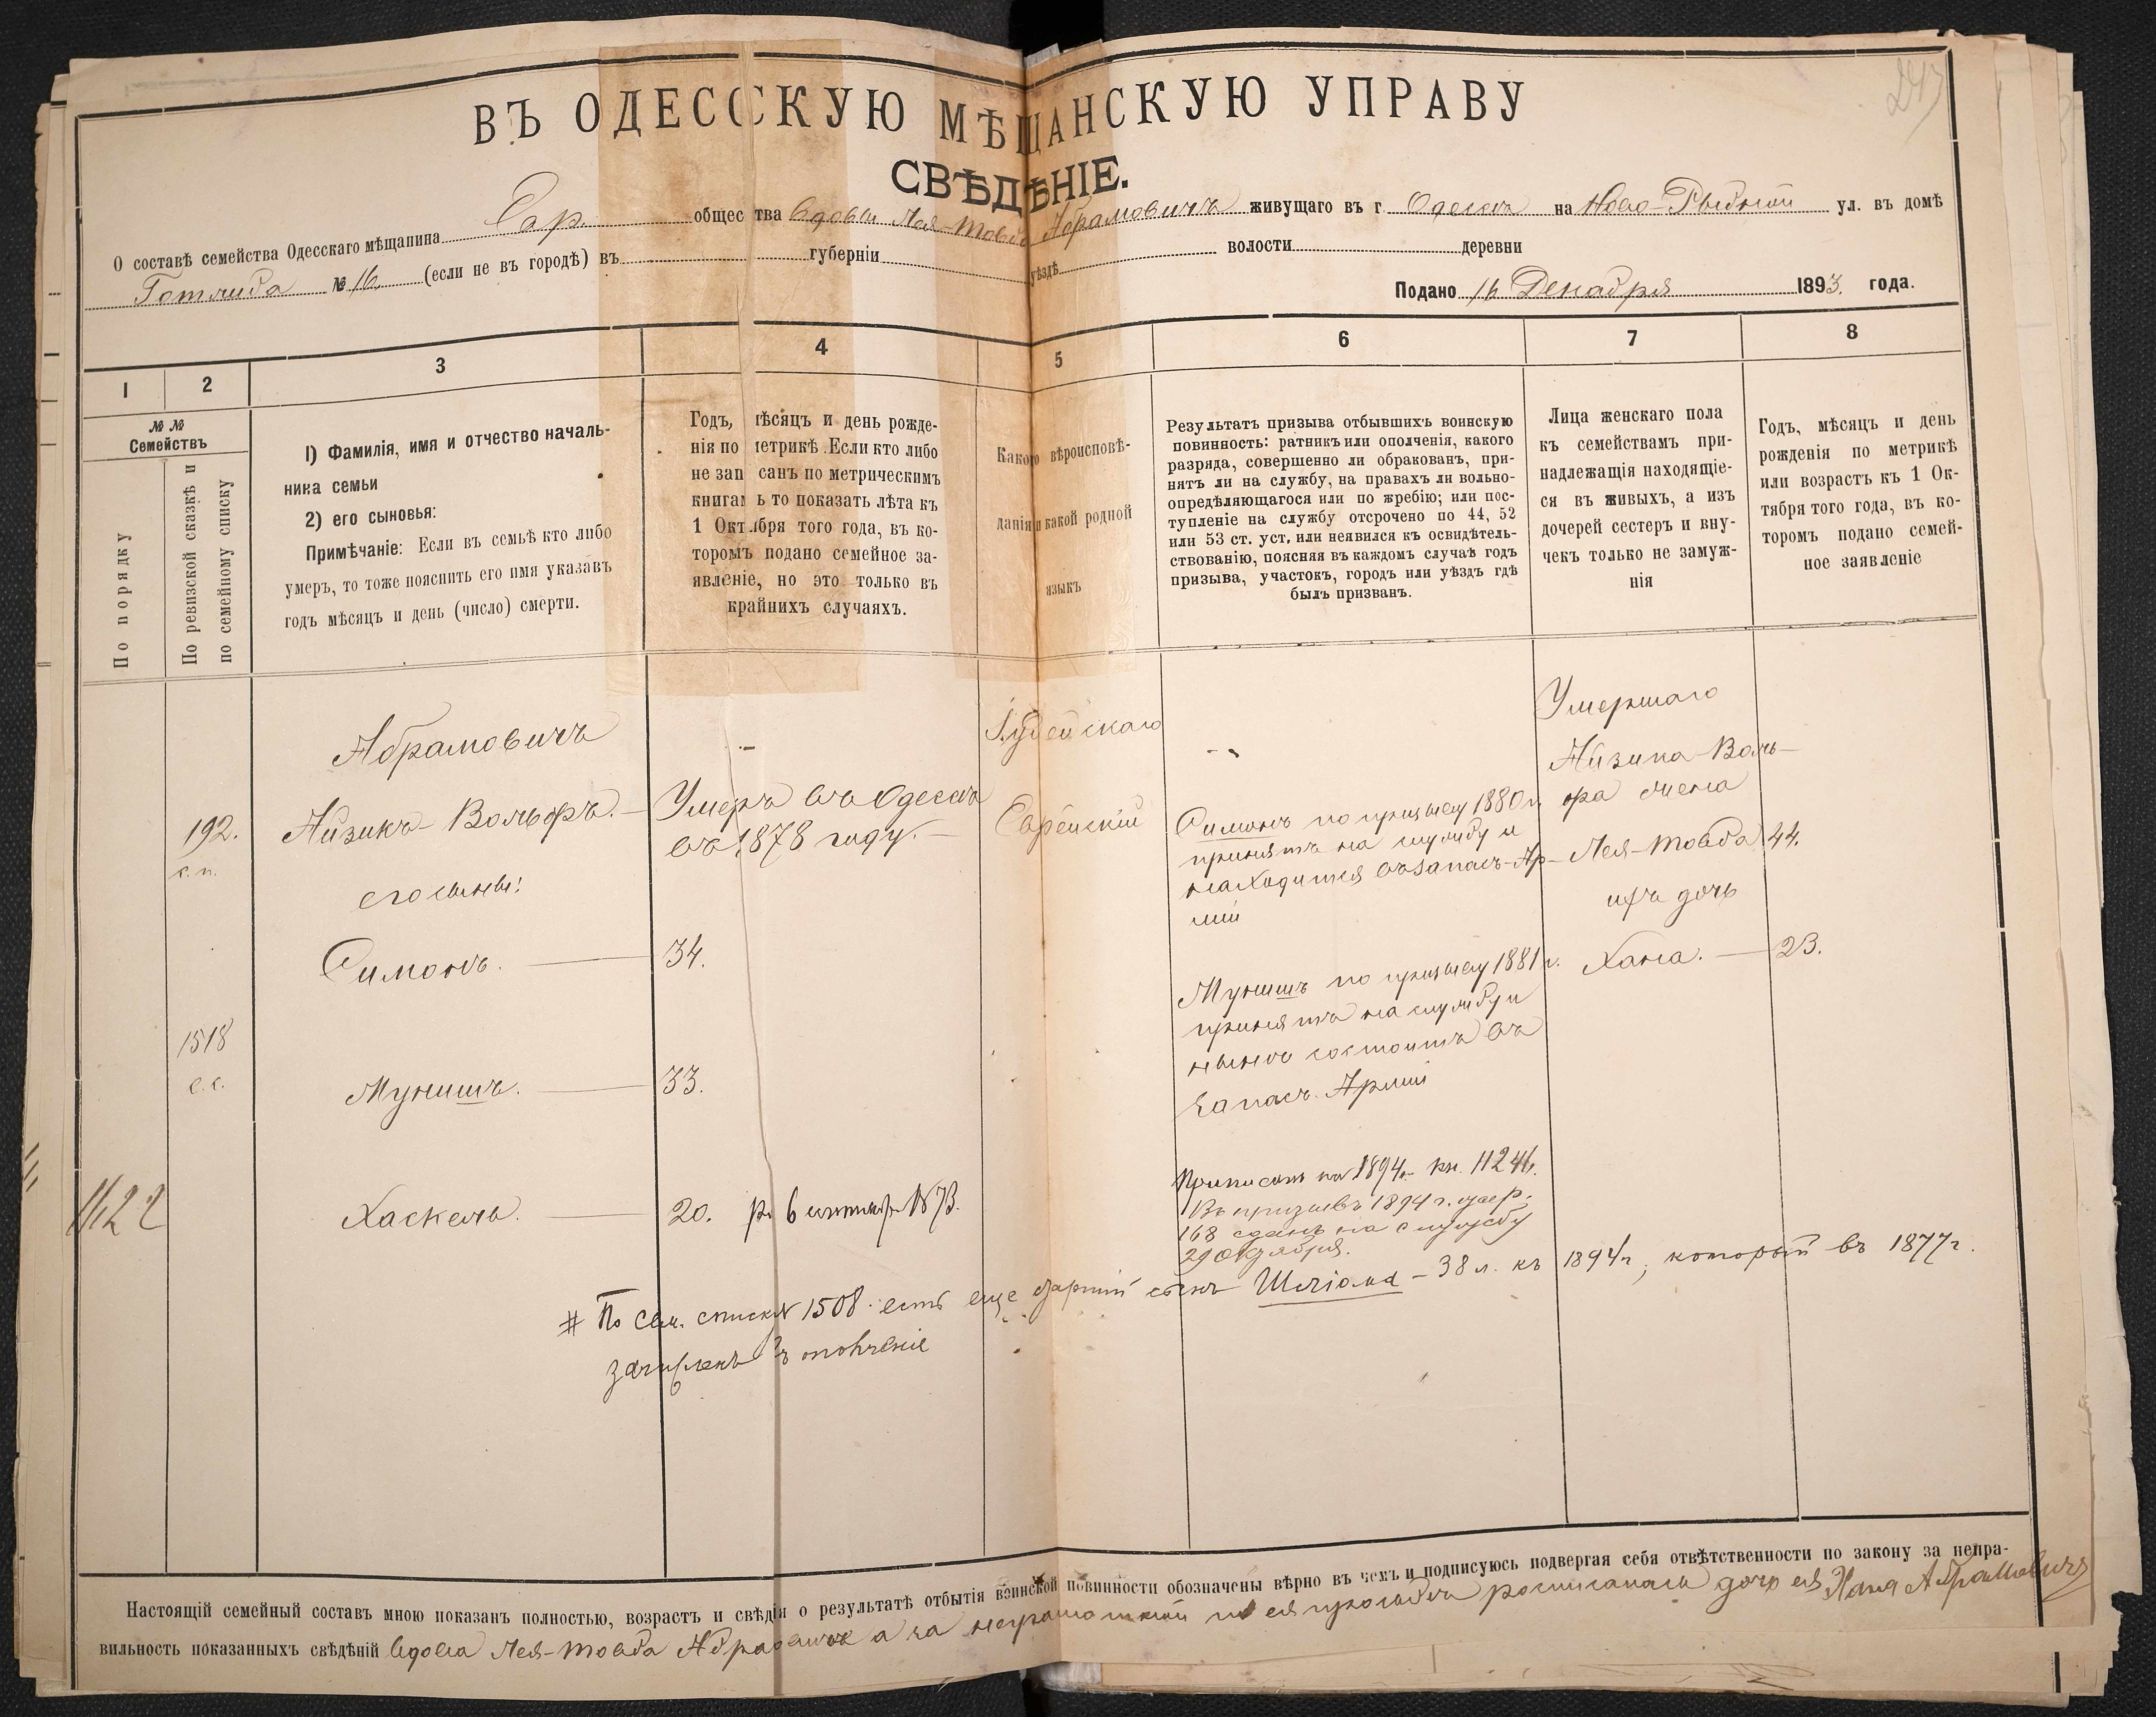 243
ВЪ ОДЕССКУЮ МѢЩАНСКУЮ УПРАВУ
СВѢДѢНІЕ.
О составѣ семейства Одесскаго мѣщанина Евр. общества вдовы Лея-Товба Абрамовичъ живущаго въ г Одессѣ на Ново-Рыбной ул. въ домѣ
Готлиба № 16 (если не въ городѣ) въ губерніи уѣздѣ волости деревни
Подано 16 Декабря 1893. года.
1 2 3 4 5 6 7 8
№ №
Семействъ
По порядку
По ревизской сказкѣ и
по семейному списку
1) Фамилія, имя и отчество началь-
ника семьи
2) его сыновья:
Примѣчаніе: Если въ семьѣ кто либо
умеръ, то тоже пояснить его имя указавъ
годъ мѣсяцъ и день (число) смерти.
Годъ, мѣсяцъ и день рожде-
нія по метрикѣ. Если кто либо
не записанъ по метрическимъ
книгамъ то показать лѣта къ
1 Октября того года, въ ко-
торомъ подано семейное за-
явленіе, но это только въ
крайнихъ случаяхъ.
Какого вѣроисповѣ-
данія и какой родной
языкъ
Результатъ призыва отбывшихъ воинскую
повинность: ратникъ или ополченія, какого
разряда, совершенно ли обракованъ, при-
нятъ ли на службу, на правахъ ли вольно-
опредѣляющагося или по жребію; или пос-
тупленіе на службу отсрочено по 44, 52
или 53 ст. уст. или неявился къ освидѣтель-
ствованію, поясняя въ каждомъ случаѣ годъ
призыва, участокъ, городъ или уѣздъ гдѣ
былъ призванъ.
Лица женскаго пола
къ семействамъ при-
надлежащія находящіе-
ся въ живыхъ, а изъ
дочерей сестеръ и вну-
чекъ только не замуж-
нія
Годъ, мѣсяцъ и день
рожденія по метрикѣ
или возрастъ къ 1 Ок-
тября того года, въ ко-
торомъ подано семей-
ное заявленіе
192.
с. п.
1518
с. с.
1622
Абрамовичъ
Айзикъ-Вольфъ. —
его сыновья:
Симонъ. —
Мунишъ. —
Хаскель. —
Умеръ въ Одессѣ
въ 1878 году. —
34.
33.
20. р. 6 сентября 1873.
Іудейскаго
Еврейскій
Симонъ по призыву 1880 г.
принятъ на службу и
находится въ запасѣ Ар-
міи
Мунишъ по призыву 1881 г.
принятъ на службу и
нынѣ состоитъ въ
запасѣ Арміи
Приписанъ на 1894 г.
Въ призывѣ 1894 г. жер.
168 сданъ на службу
29 Октября.
Умершаго
Айзика-Воль-
фа жена
Лея-Товба 44.
ихъ дочь
Хана. — 23.
# По сем. списку 1508 есть еще старшій сынъ Шліома — 38 л. къ 1894 г., который въ 1877 г.
зачисленъ въ ополченіе
Настоящій семейный составъ мною показанъ полностью, возрастъ и свѣдѣнія о результатѣ отбытія воинской повинности обозначены вѣрно въ чемъ и подписуюсь подвергая себя отвѣтственности по закону за непра-
вильность показанныхъ свѣдѣній вдова Лея-Товба Абрамовичъ а за неграмотной по ея просьбѣ росписалась дочь ея Хана Абрамовичъ